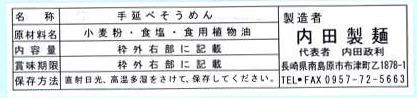 名称 手延べそうめん
原材料名 小麦粉・食塩・食用植物油
内容量 枠外右部に記載
賞味期限 枠外右部に記載
保存方法 直射日光、高温多湿をさけて、保存してください。
製造者
内田製麺
代表者 内田政利
長崎県南島原市布津町乙1878-1
TEL•FAX 0957-72-5663